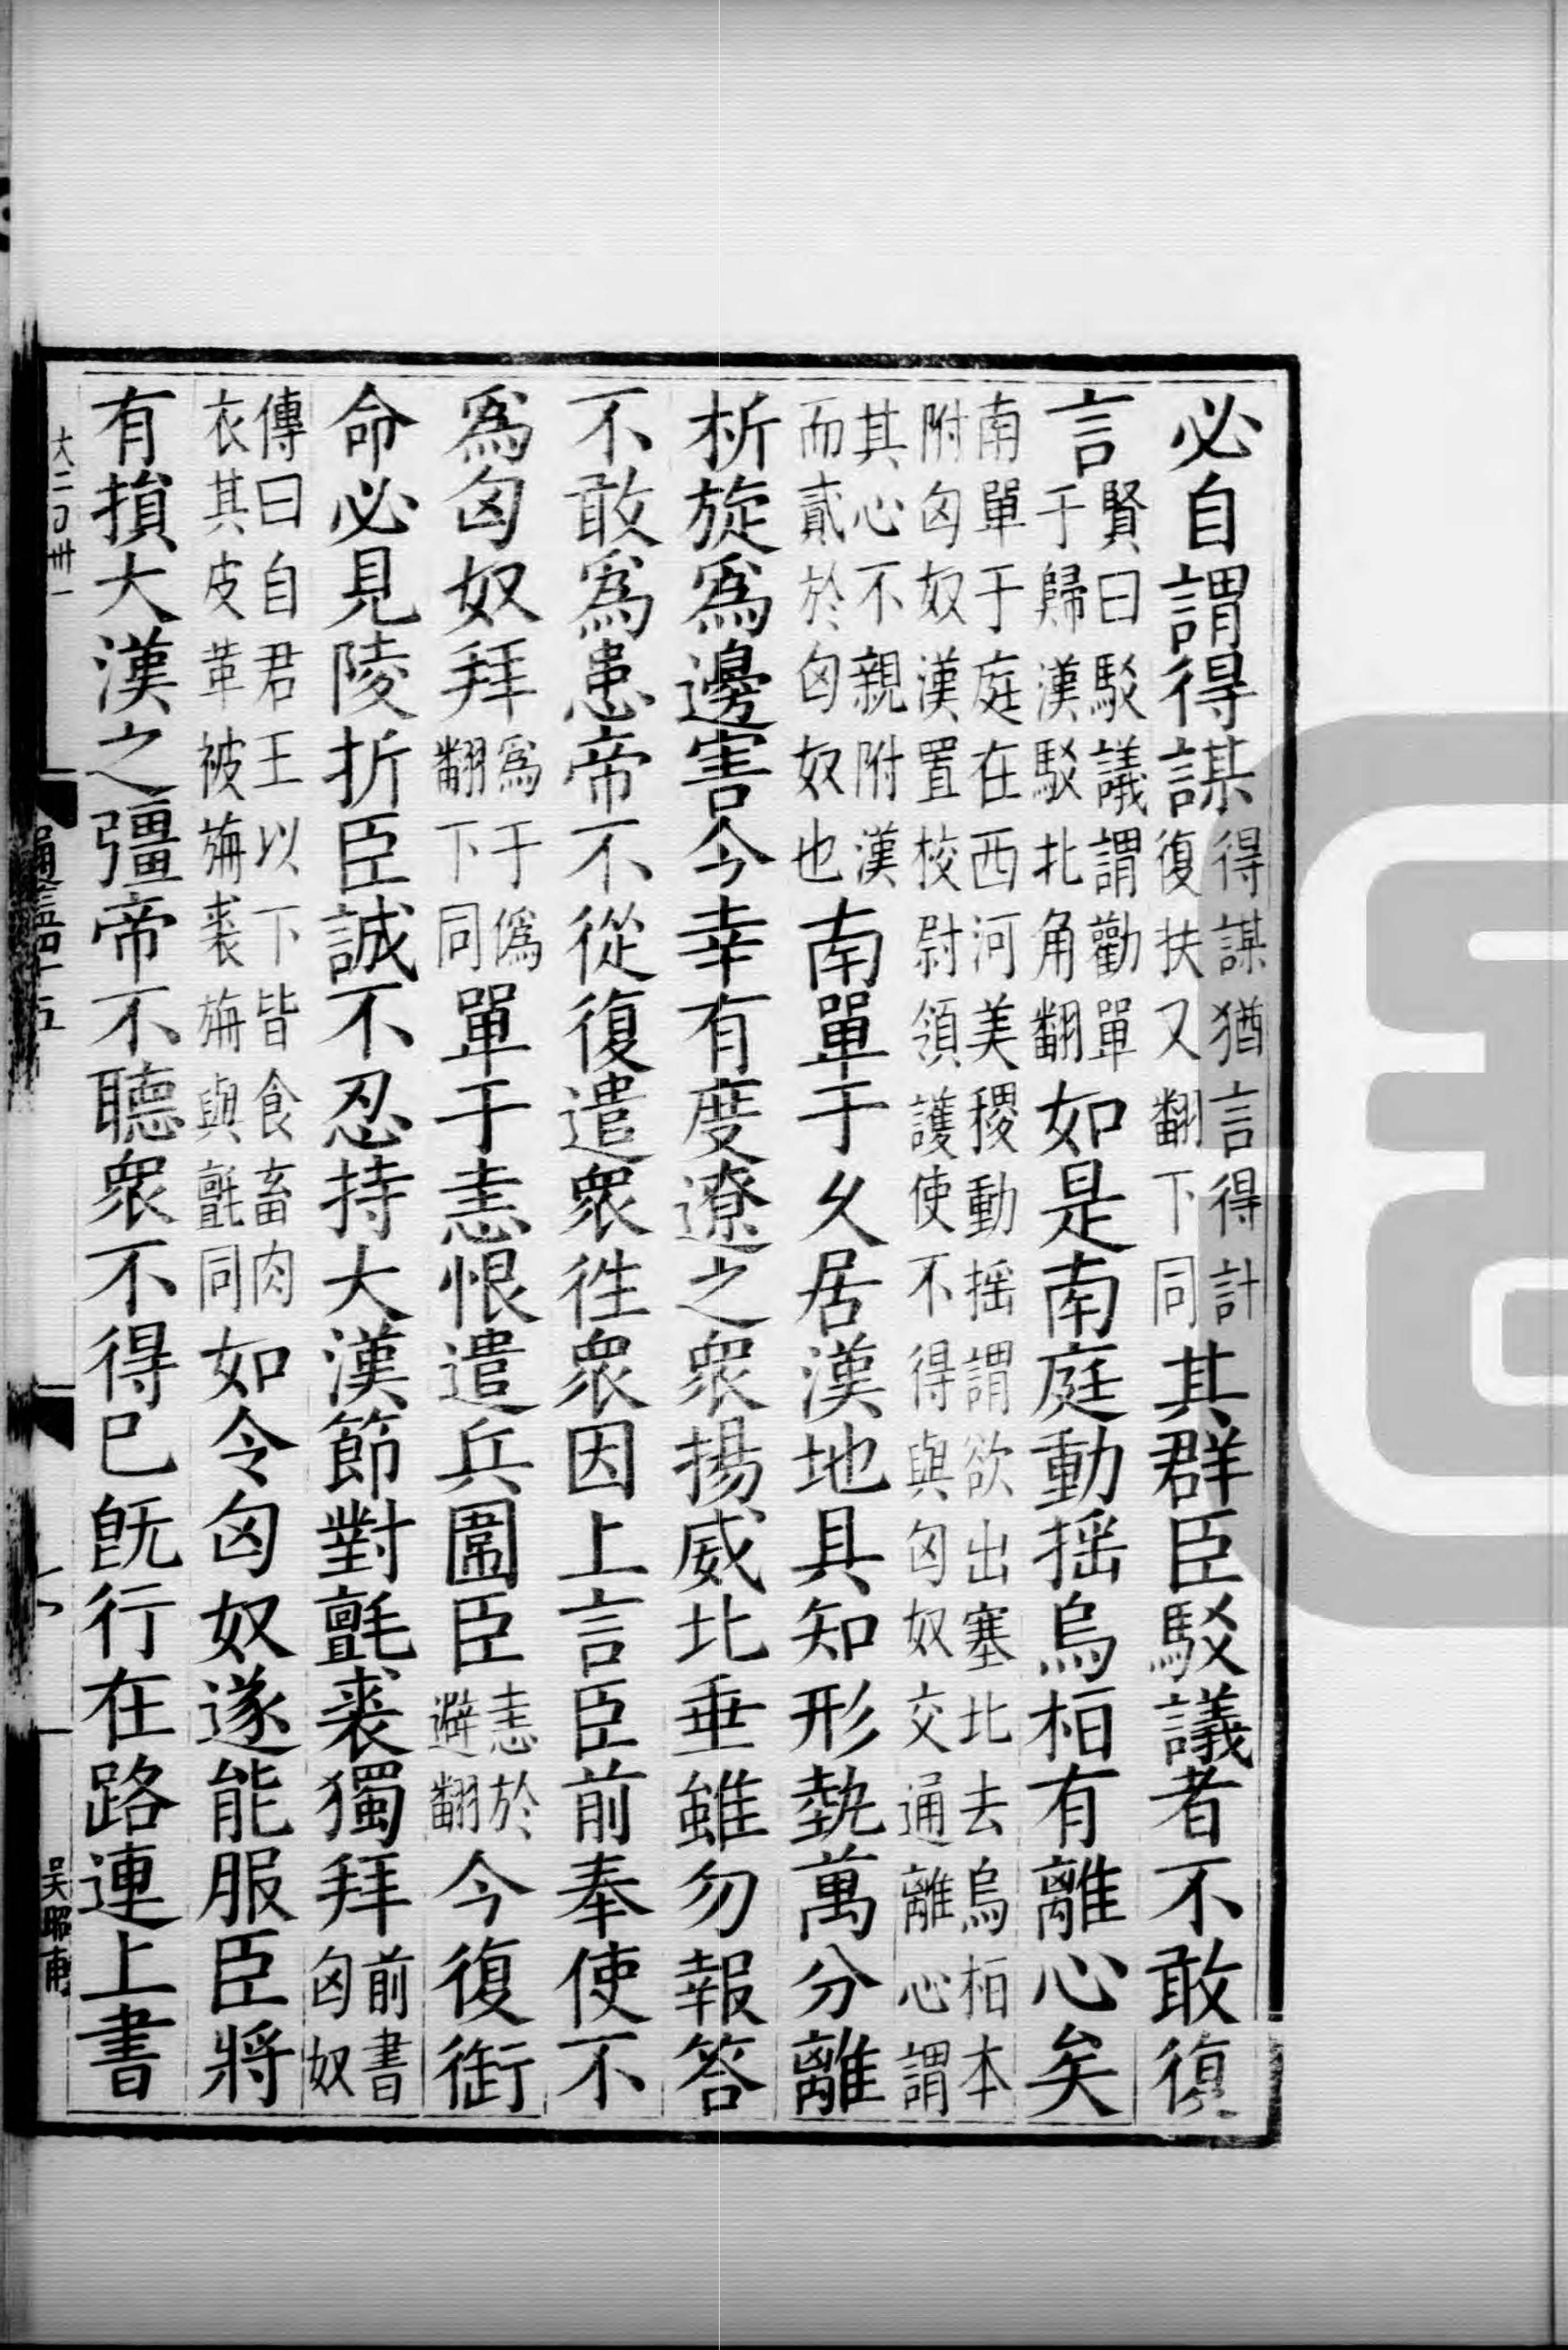 必自謂得謀得謀猶言得計復扶又翻下同其群臣駁議者不敢復
言賢曰駁議謂勸單于歸漢駁北角翻如是南庭動揺烏桓有離心矣
南單于庭在西河美稷動揺謂欲出塞北去烏桓本附匈奴漢置校尉領護使不得與匈奴交通離心謂
其心不親附漢而貳於匈奴也南單于乆居漢地具知形埶萬分離
析旋爲邊害今幸有度遼之衆揚威北垂雖勿報荅
不敢爲患帝不從復遣衆徃衆因上言臣前奉使不
爲匈奴拜爲于僞翻下同單于恚恨遣兵圍臣恚於避翻今復銜
命必見陵折臣誠不忍持大漢節對氈裘獨拜前書匈奴
傳曰自君王以下皆食畜肉衣其皮革被旃裘旃與氈同如令匈奴遂能服臣將
有損大漢之彊帝不聽衆不得已旣行在路連上書
大二百卌一
吴昭甫